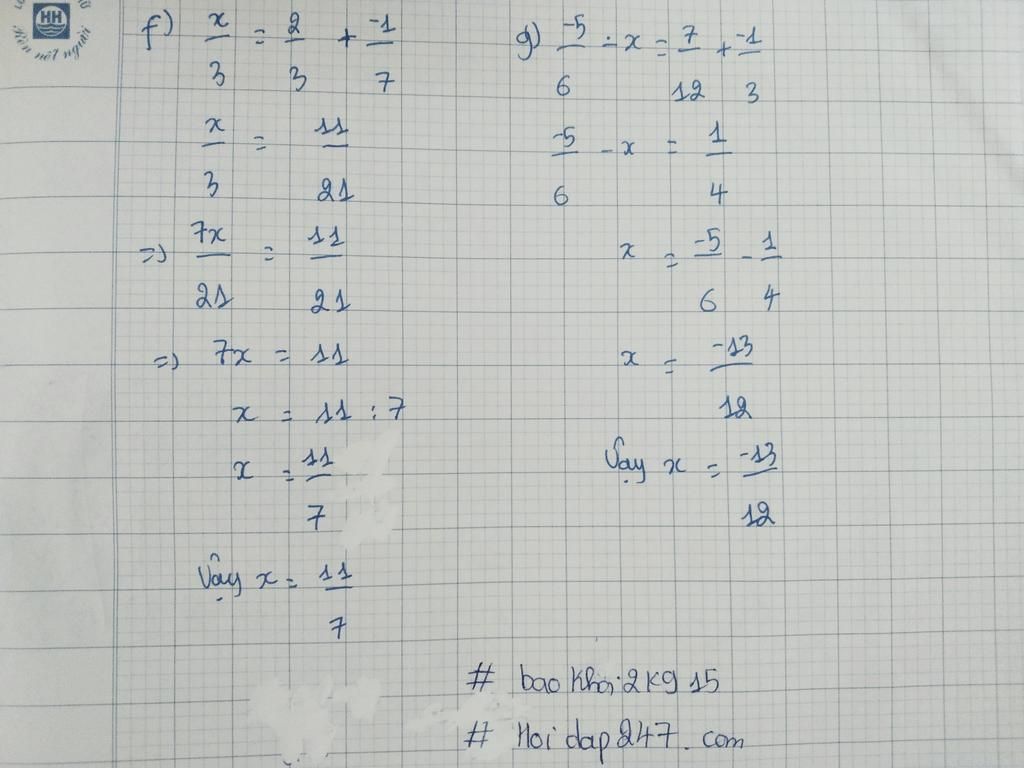 HH
nét người
f) x/3 = 2/3 + -1/7
x/3 = 11/21
=) 7x/21 = 11/21
=) 7x = 11
x = 11 : 7
x = 11/7
Vậy x = 11/7
g) -5/6 - x = 7/12 + -1/3
-5/6 - x = 1/4
x = -5/6 - 1/4
x = -13/12
Vậy x = -13/12
# bao khoi 2kg 15
# Hoi dap 247 . com